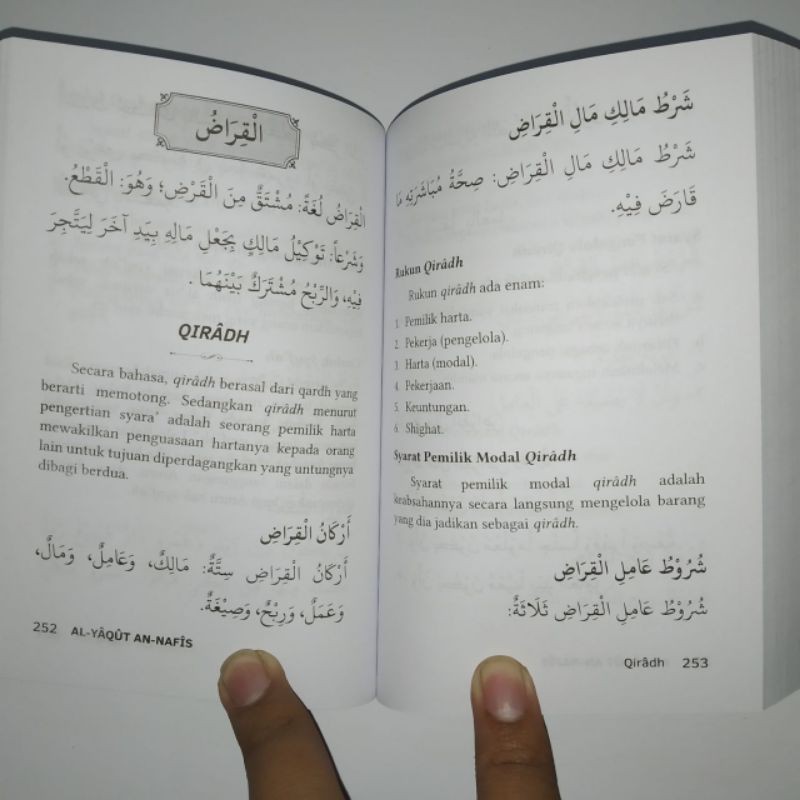 الْقِرَاضُ
الْقِرَاضُ لُغَةً: مُشْتَقٌّ مِنَ الْقَرْضِ؛ وَهُوَ: الْقَطْعُ.
وَشَرْعاً: تَوْكِيْلُ مَالِكٍ بِجَعْلِ مَالِهِ بِيَدِ آخَرَ لِيَتَّجِرَ
فِيْهِ، وَالرِّبْحُ مُشْتَرَكٌ بَيْنَهُمَا .
QIRÂDH
Secara bahasa, qirâdh berasal dari qardh yang
berarti memotong. Sedangkan qirâdh menurut
pengertian syara' adalah seorang pemilik harta
mewakilkan penguasaan hartanya kepada orang
lain untuk tujuan diperdagangkan yang untungnya
dibagi berdua.
أَرْكَانُ الْقِرَاضِ
أَرْكَانُ الْقِرَاضِ سِتَّةٌ: مَالِكٌ، وَعَامِلٌ، وَمَالٌ،
وَعَمَلٌ، وَرِبْحٌ، وَصِيْغَةٌ.
252 AL-YÂQÛT AN-NAFÎS
شَرْطُ مَالِكِ مَالِ الْقِرَاضِ
شَرْطُ مَالِكِ مَالِ الْقِرَاضِ: صِحَّةُ مُبَاشَرَتِهِ مَا
قَارَضَ فِيْهِ.
Rukun Qirâdh
Rukun qirâdh ada enam:
1. Pemilik harta.
2. Pekerja (pengelola).
3. Harta (modal).
4. Pekerjaan.
5. Keuntungan.
6. Shighat.
Syarat Pemilik Modal Qirâdh
Syarat pemilik modal qirâdh adalah
keabsahannya secara langsung mengelola barang
yang dia jadikan sebagai qirâdh.
شُرُوْطُ عَامِلِ الْقِرَاضِ
شُرُوْطُ عَامِلِ الْقِرَاضِ ثَلَاثَةٌ:
Qirâdh 253